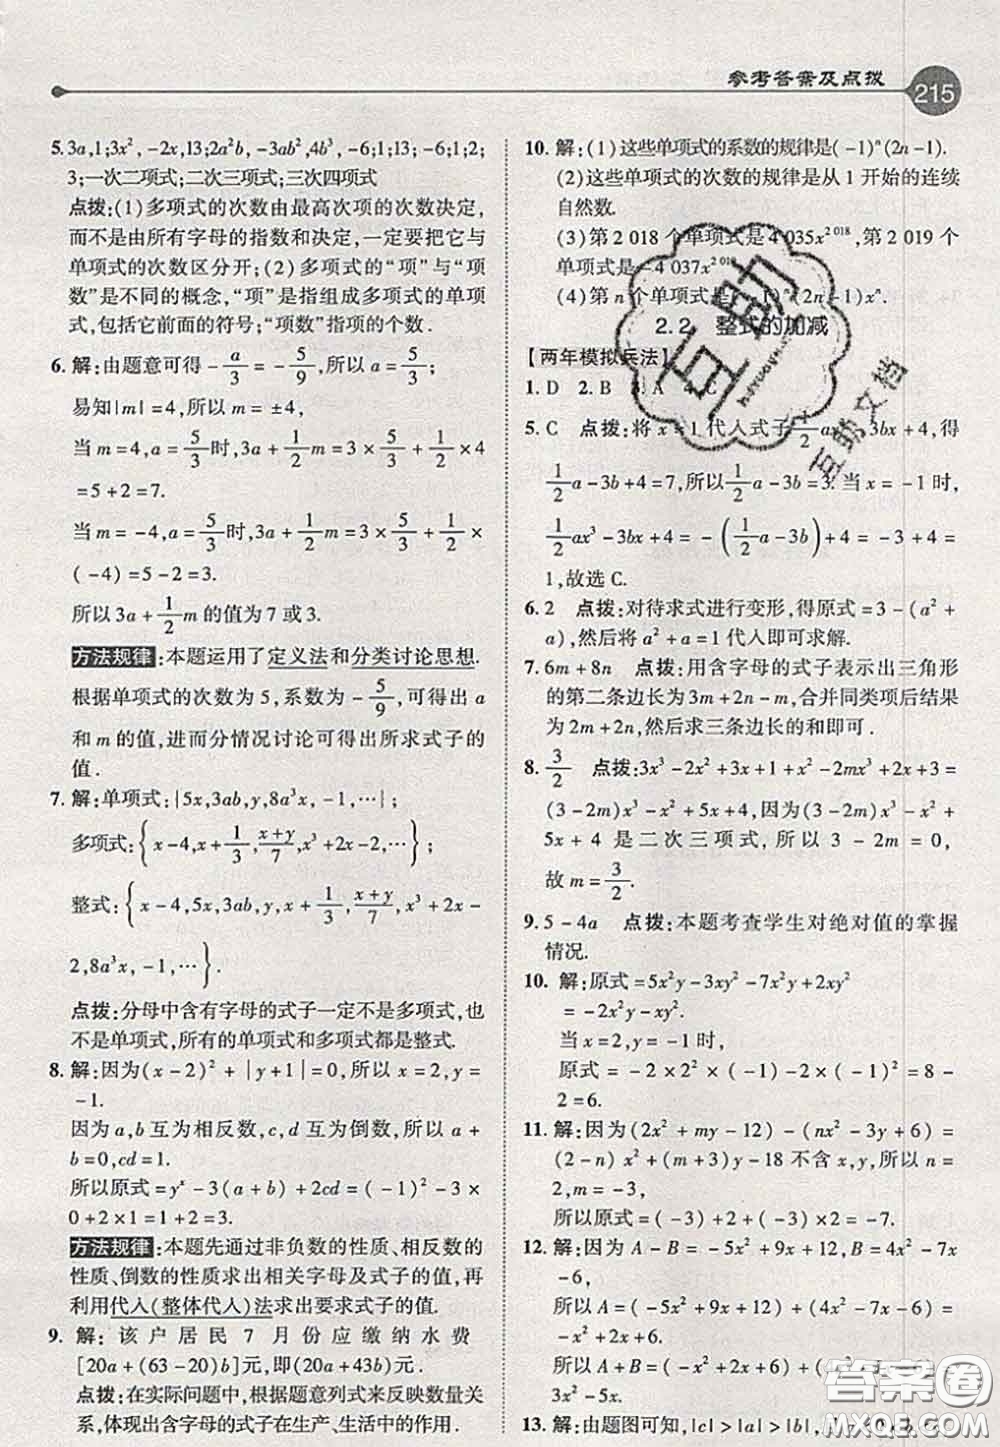 参考答案及点拨
215
5. 3a,1;3x², -2x,13;2a²b, -3ab²,4b³, -6;1;13; -6;1;2;
3;一次二项式;二次三项式;三次四项式
点拨:(1)多项式的次数由最高次项的次数决定,
而不是由所有字母的指数和决定,一定要把它与
单项式的次数区分开;(2)多项式的“项”与“项
数”是不同的概念,“项”是指组成多项式的单项
式,包括它前面的符号;“项数”指项的个数.
6. 解:由题意可得 -a/3 = -5/9,所以 a = 5/3;
易知|m| =4,所以 m = ±4,
当 m =4,a = 5/3 时,3a + 1/2 m =3 × 5/3 + 1/2 ×4
=5 +2 =7.
当 m = -4,a = 5/3 时,3a + 1/2 m =3 × 5/3 + 1/2 ×
( -4) =5 -2 =3.
所以 3a + 1/2 m 的值为 7 或 3.
方法规律:本题运用了定义法和分类讨论思想.
根据单项式的次数为 5,系数为 -5/9,可得出 a
和 m 的值,进而分情况讨论可得出所求式子的
值.
7. 解:单项式:{5x,3ab,y,8a³x, -1,…};
多项式:{x -4,x + 1/3, (x+y)/7, x³ +2x -2,…};
整式:{x -4,5x,3ab,y,x + 1/3, (x+y)/7, x³ +2x -
2,8a³x, -1,…}.
点拨:分母中含有字母的式子一定不是多项式,也
不是单项式,所有的单项式和多项式都是整式.
8. 解:因为(x -2)² + |y +1| =0,所以 x =2,y =
-1.
因为 a,b 互为相反数,c,d 互为倒数,所以 a +
b =0,cd =1.
所以原式 = yˣ -3(a + b) +2cd = ( -1)² -3 ×
0 +2 ×1 =1 -0 +2 =3.
方法规律:本题先通过非负数的性质、相反数的
性质、倒数的性质求出相关字母及式子的值,再
利用代人(整体代人)法求出要求式子的值.
9. 解:该户居民 7 月份应缴纳水费
[20a + (63 -20)b]元,即(20a +43b)元.
点拨:在实际问题中,根据题意列式来反映数量关
系,体现出含字母的式子在生产、生活中的作用.
10. 解:(1)这些单项式的系数的规律是( -1)ⁿ(2n -1).
(2)这些单项式的次数的规律是从 1 开始的连续
自然数.
(3)第 2 018 个单项式是 4 035x² ⁰¹⁸,第 2 019 个
单项式是 -4 037x² ⁰¹⁹.
(4)第 n 个单项式是( -1)ⁿ(2n -1)xⁿ.
2.2 整式的加减
【两年模拟兵法】
1. D 2. B 3. A 4. C
5. C 点拨:将 x =1 代人式子 1/2 ax³ -3bx +4,得
1/2 a -3b +4 =7,所以 1/2 a -3b =3. 当 x = -1 时,
1/2 ax³ -3bx +4 = -(1/2 a -3b) +4 = -3 +4 =
1,故选 C.
6. 2 点拨:对待求式进行变形,得原式 =3 - (a² +
a),然后将 a² + a =1 代人即可求解.
7. 6m +8n 点拨:用含字母的式子表示出三角形
的第二条边长为 3m +2n - m,合并同类项后结果
为 2m +2n,然后求三条边长的和即可.
8. 3/2 点拨:3x³ -2x² +3x +1 + x² -2mx³ +2x +3 =
(3 -2m)x³ - x² +5x +4,因为(3 -2m)x³ - x² +
5x +4 是二次三项式,所以 3 -2m =0,
故 m = 3/2.
9. 5 -4a 点拨:本题考查学生对绝对值的掌握
情况.
10. 解:原式 =5x²y -3xy² -7x²y +2xy²
= -2x²y - xy².
当 x =2,y = -1 时,
原式 = -2 ×2² ×( -1) -2 ×( -1)² =8 -
2 =6.
11. 解:因为(2x² + my -12) - (nx² -3y +6) =
(2 - n)x² + (m +3)y -18 不含 x,y,所以 n =
2,m = -3,
所以原式 = ( -3) +2 +2 ×( -3) = -7.
12. 解:因为 A - B = -5x² +9x +12,B =4x² -7x
-6,
所以 A = ( -5x² +9x +12) + (4x² -7x -6) =
-5x² +9x +12 +4x² -7x -6 = - x² +2x +6.
所以 A + B = ( - x² +2x +6) + (4x² -7x -6) =
3x² -5x.
13. 解:由题图可知,|c| >|a| >|b|,
互助
互助文档
答案圈
MXQE.COM